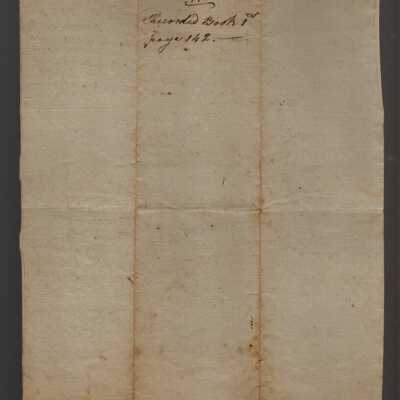 Recorded Book 1st
page 142.—